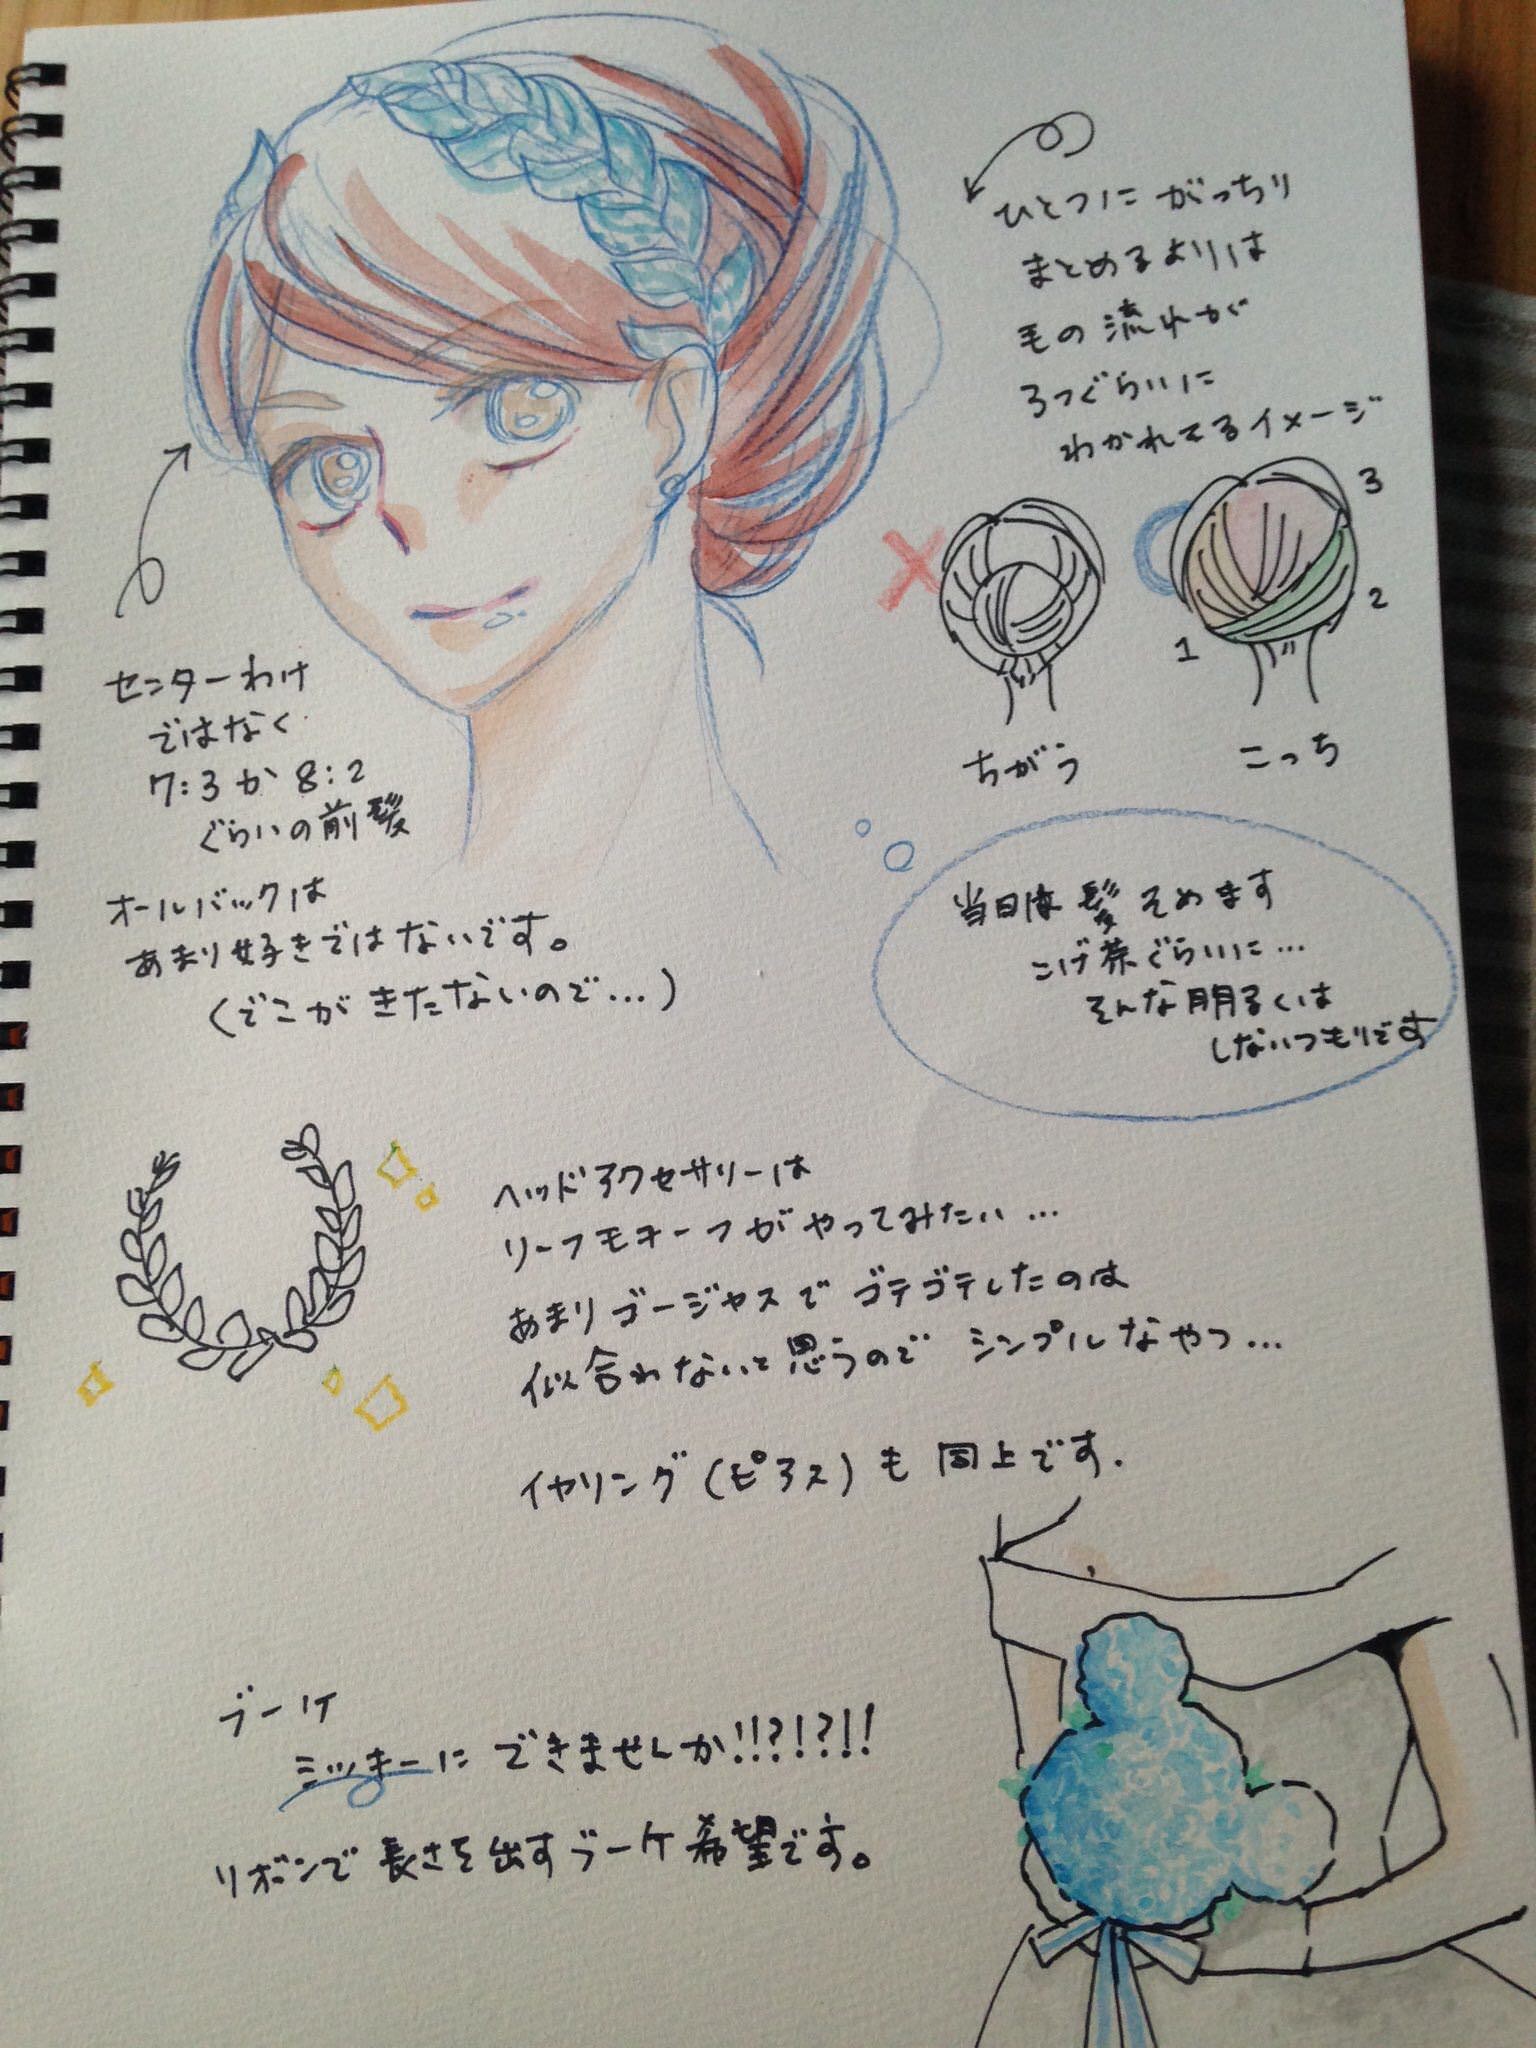 ひとつに がっちり
まとめるよりは
毛の流れが
3つぐらいに
わかれてるイメージ
3
2
1
ちがう
こっち
センターわけ
ではなく
7:3か8:2
ぐらいの前髪
オールバックは
あまり好きではないです。
(でこがきたないので…)
当日は髪そめます
こげ茶ぐらいに…
そんな明るくは
しないつもりです
ヘッドアクセサリーは
リーフモチーフがやってみたい…
あまりゴージャスでゴテゴテしたのは
似合わないと思うので シンプルなやつ…
イヤリング(ピアス)も同上です.
ブーケ
ミッキーに できませんか!!?!?!!
リボンで長さを出すブーケ希望です。